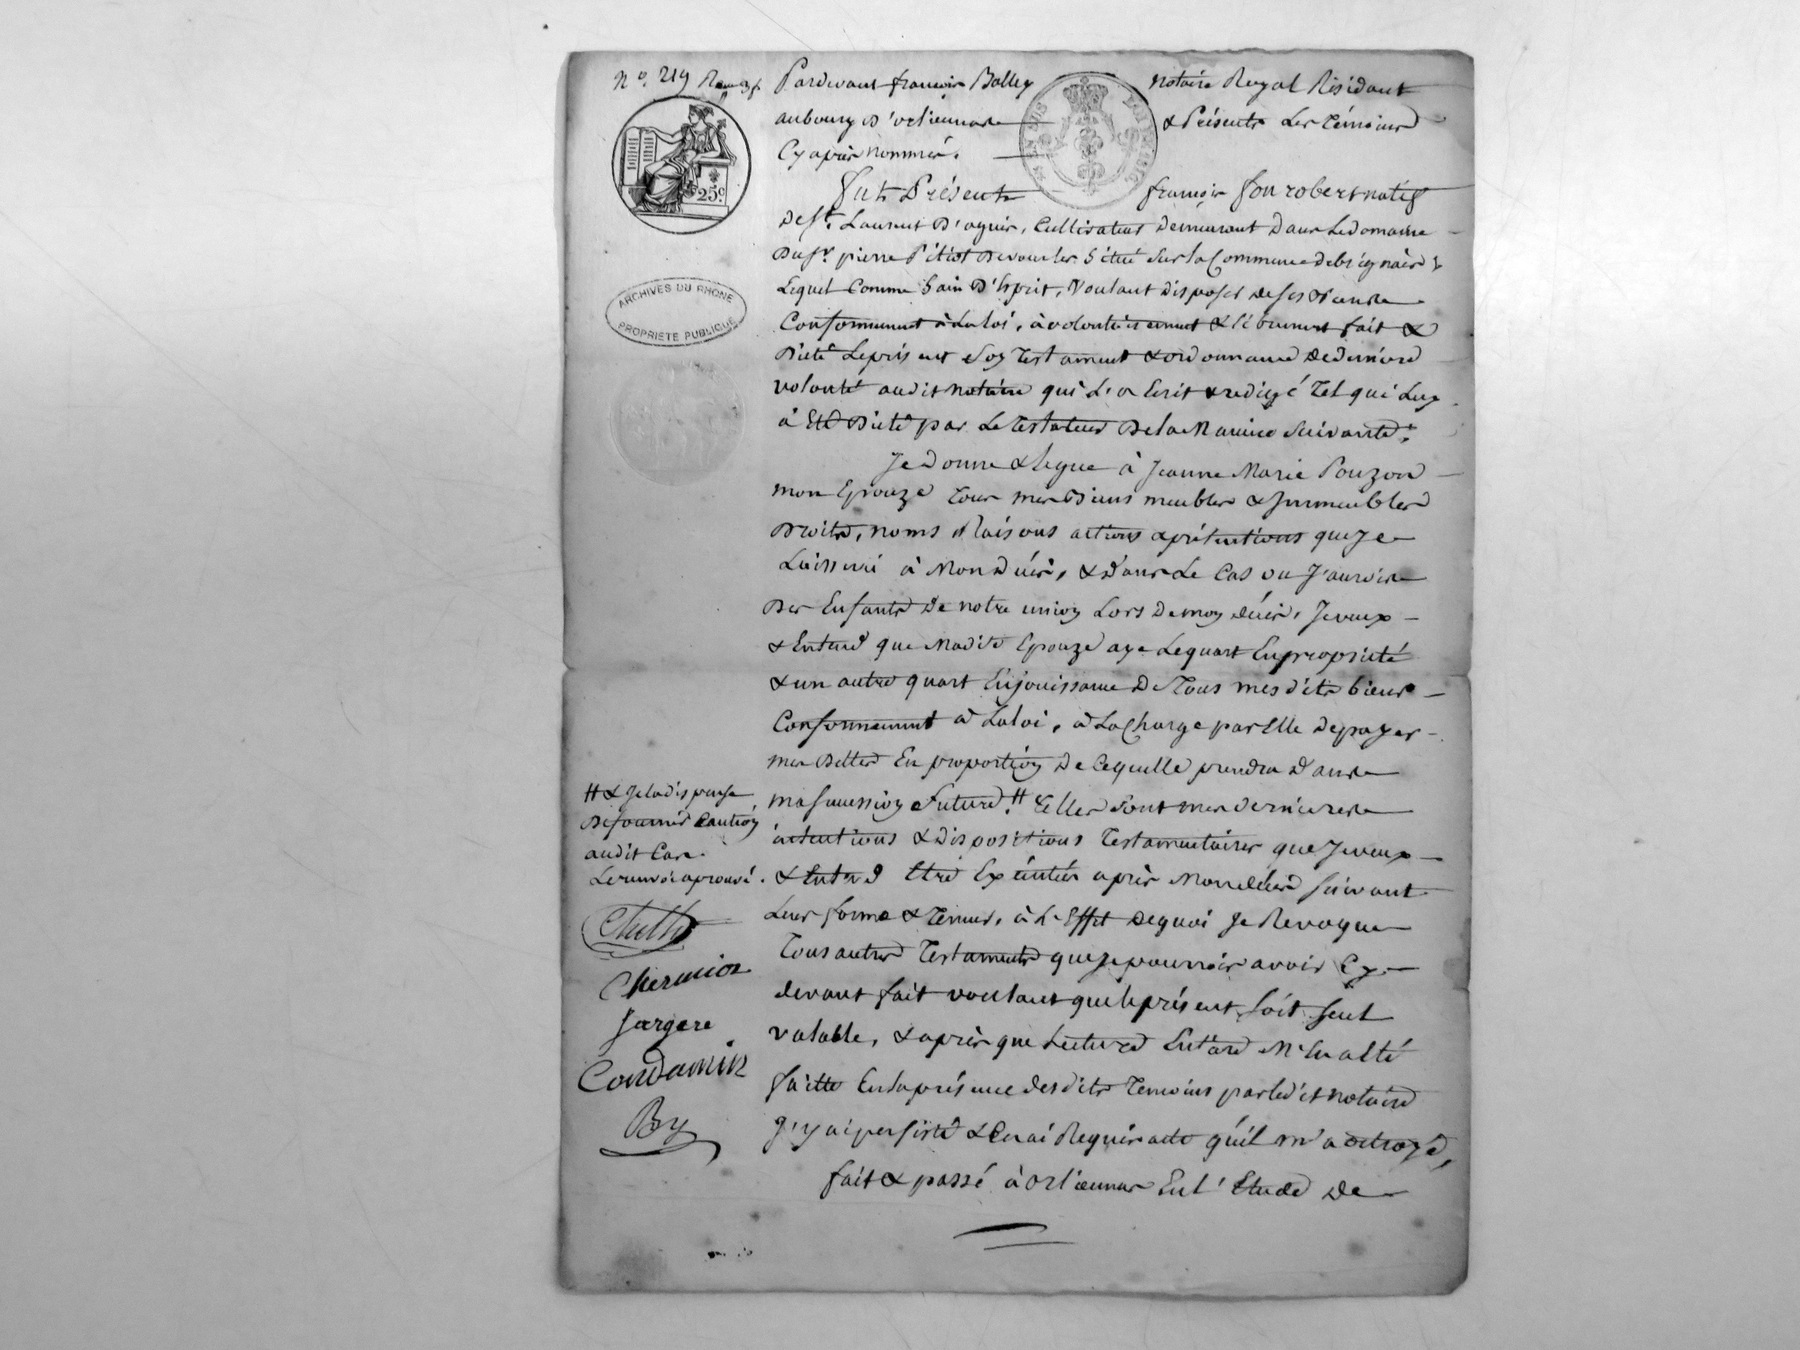 N° 219
Pardevant françois Balley notaire Royal Résidant
au bourg D'orliennas & Présents Les Témoins
Cy après nommés.
25c.
fut Présent françois fon robert natif
De St. Laurent D'agnis, Cultivateur Demeurant Dans Le domaine
Du Sr. pierre situé sur la Commune de brignais
Lequel Comme Sain D'Esprit, Voulant disposer de ses Biens
ARCHIVES DU RHONE
PROPRIETE PUBLIQUE
Conformement à La loi, à volontairement & librement fait &
Dicté Le présent Son Testament & ordonnance De derniere
volonté audit notaire qui L'a Ecrit & redigé Tel qui Luy
à Eté Dicté par Le Testateur De la Maniere Suivante.
Je donne & legue à Jeanne Marie Pouzon
mon Epouze Tous mes Biens meubles & Immeubles
Droits, noms Raisons actions & prétentions que Je
Laisserai à Mon Décès, & Dans Le Cas ou J'aurois
Des Enfants De notre union Lors De mon décès, Je veux
& Entend que Madite Epouze aye Le quart En propriété
& un autre quart En jouissance De Tous mes dits biens
Conformement à La loi, à La Charge par Elle De payer
mes Dettes En proportion De Ce quelle prendra Dans
ma succession Future. # Telles Sont mes dernieres
# & Je la dispense
De fournir Caution
audit Cas.
Le renvoi aprouvé.
intentions & dispositions Testamentaires que Je veux
& Entend Etre Exécutés après Mon décès suivant
Leur forme & Teneur, à L'Effet De quoi Je Revoque
Tous autres Testaments que Je pourrois avoir Cy
devant fait voulant que le présent Soit seul
valable, & après que Lecture Entière M'En a Eté
faitte En la présence des dits Témoins par le dit notaire
J'y ai persisté & En ai Requis acte qu'il m'a octroyé,
Chermion
Jargere
Condamin
By
fait & passé à Orliennas En L'Etude De